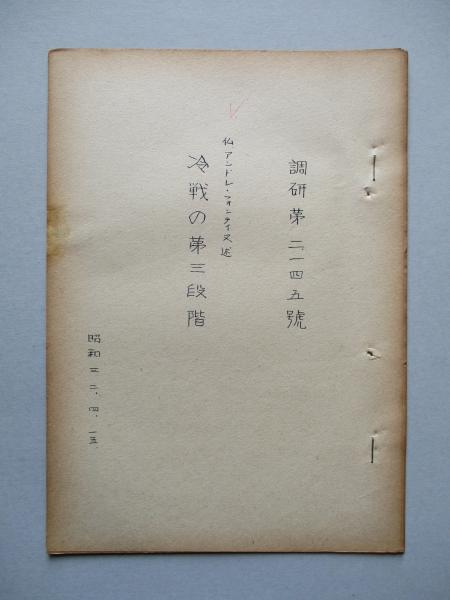 調研第二、一四五號
仏アンドレ・フォンティヌ述
冷戦の第三段階
昭和三二、四、一五、